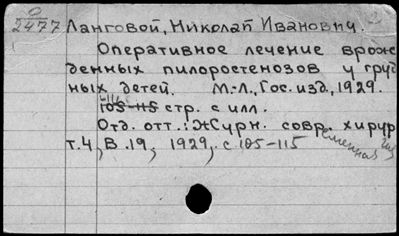 О
2477 Ланговой, Николай Иванович.
Оперативное лечение врож-
денных пилоростенозов у груд-
ных детей. М.-Л., Гос. изд., 1929.
105-115 стр. с илл.
Отд. отт.: Журн. совр. хирур
т.4, В.19, 1929, с 105-115